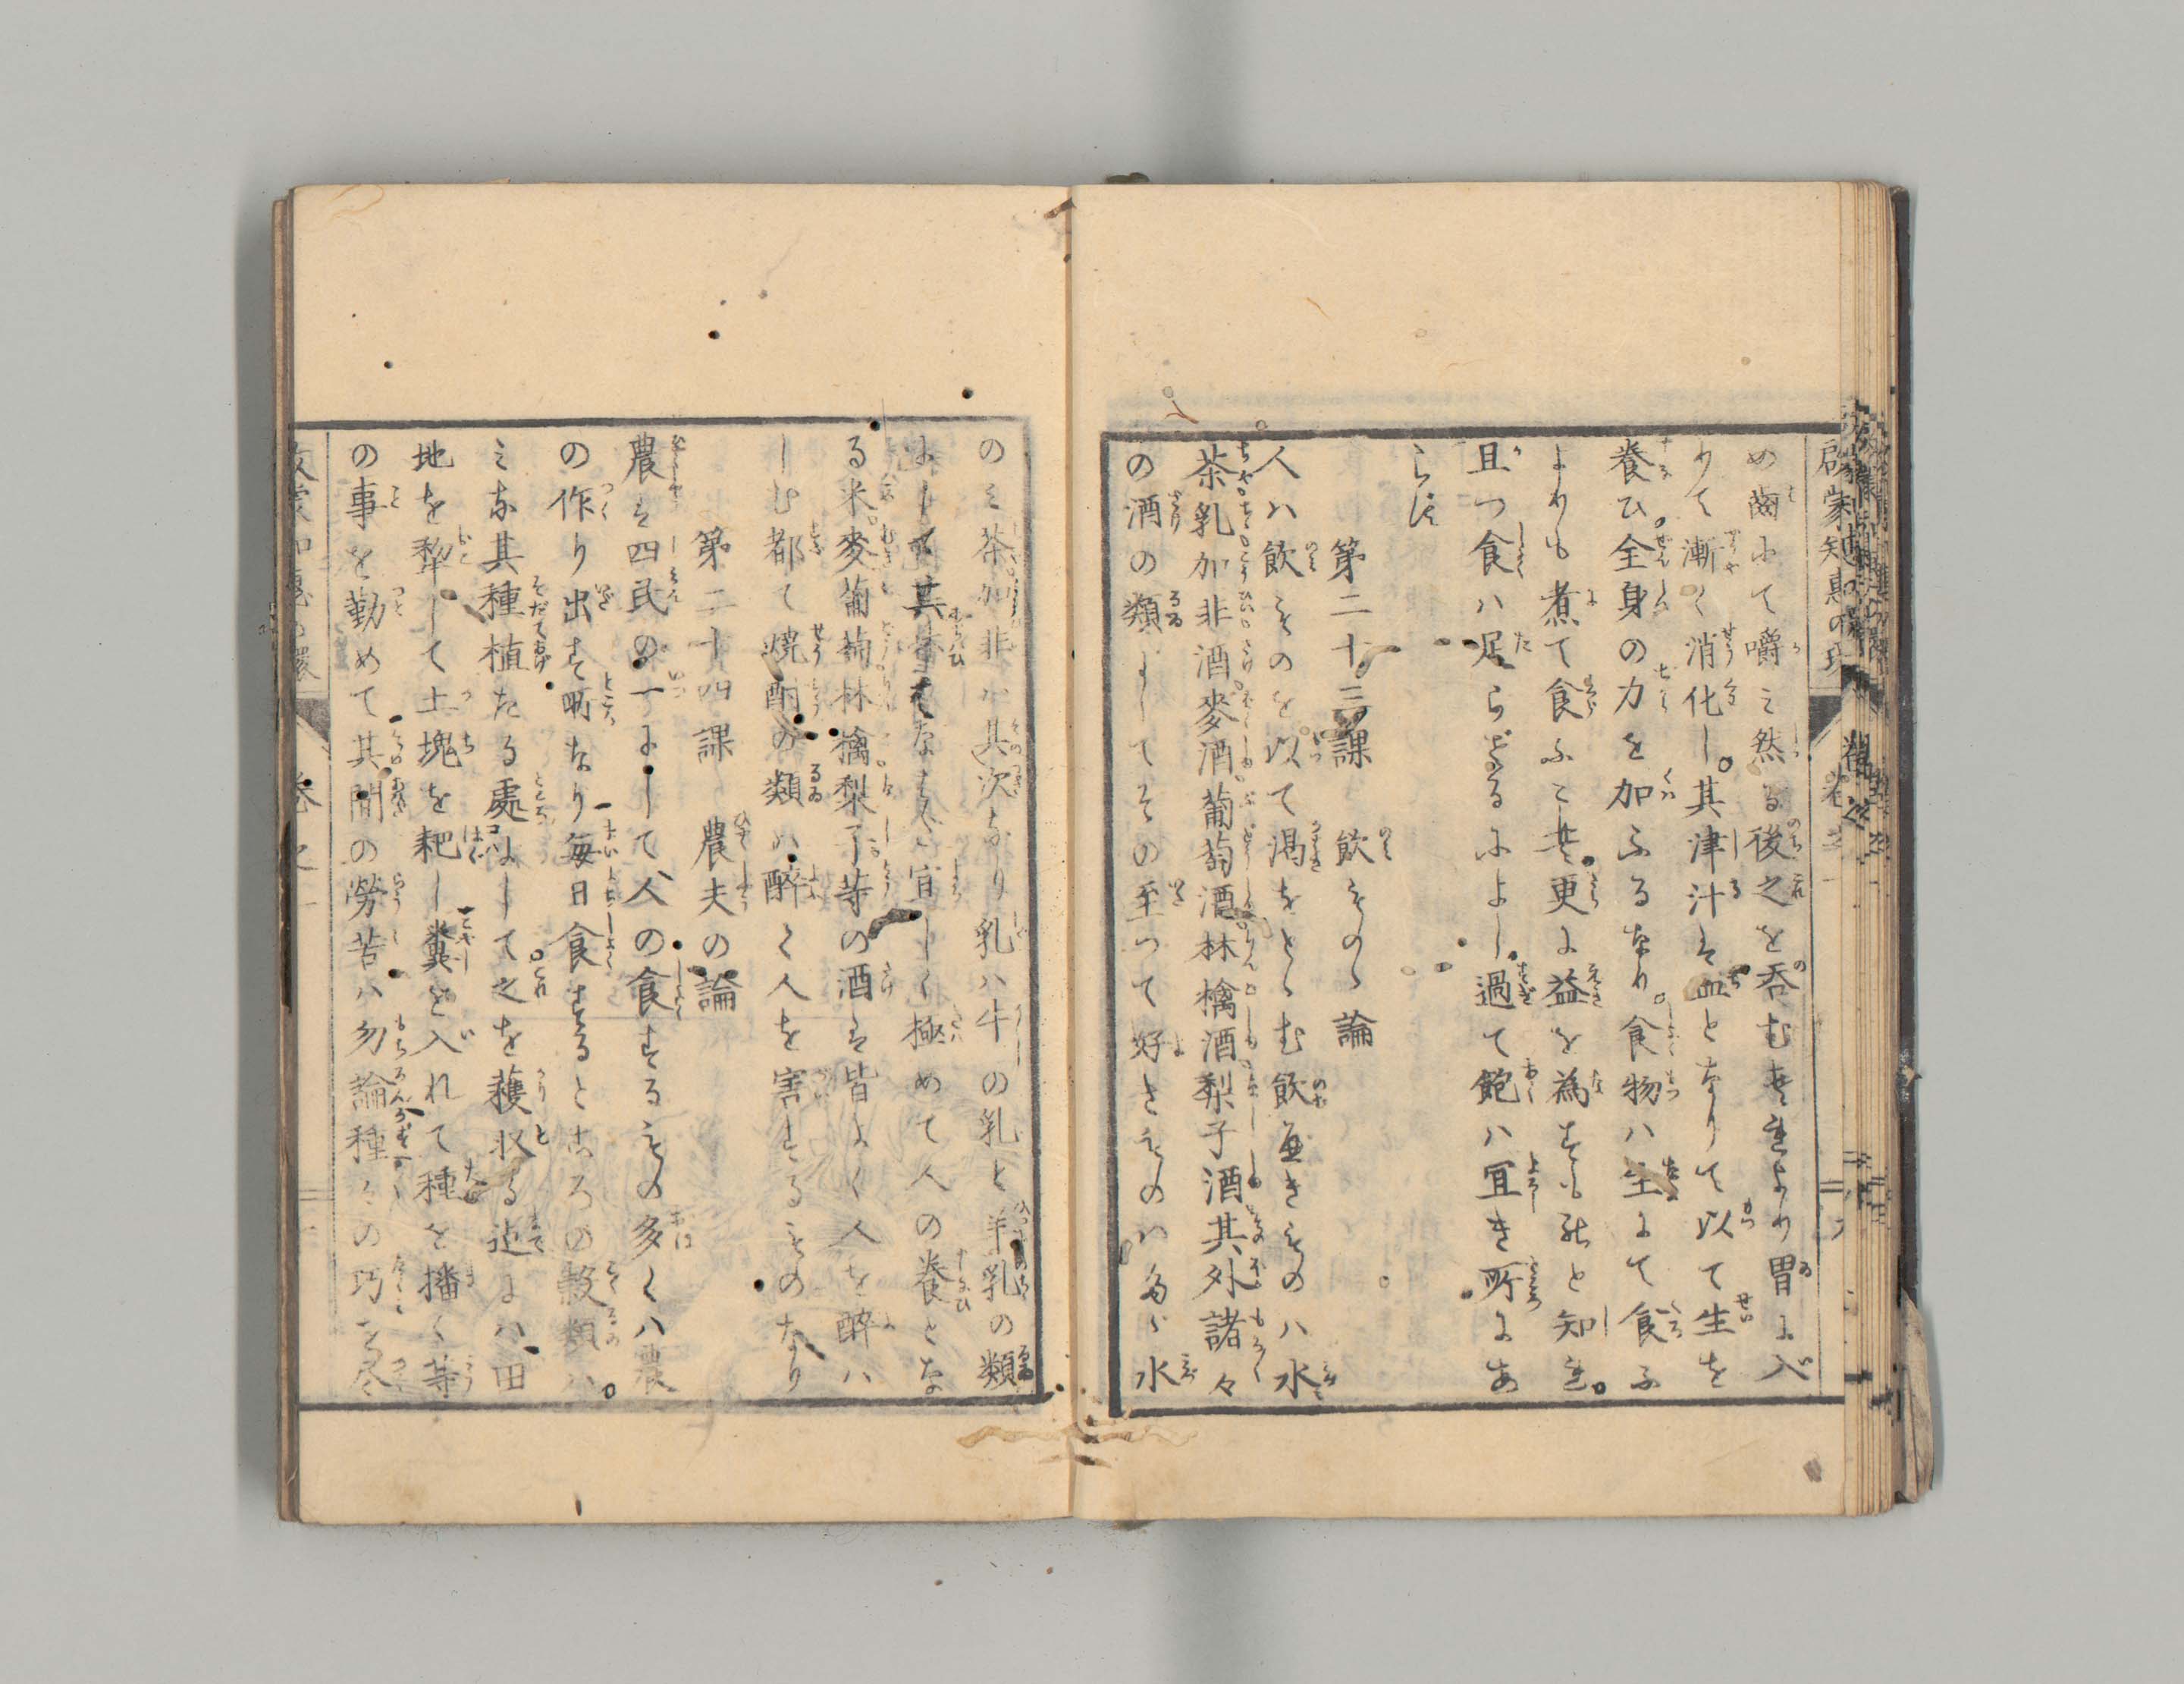 啓蒙知惠の環
巻之一
め齒にて嚼み然る後之を呑むときより胃に入
りて漸く消化し其津汁は血となりて以て生を
養ひ全身の力を加ふるなり食物ハ生にて食ふ
よりも煮て食ふこそ更に益を為すものと知れ
且つ食ハ足らざるによし過て飽ハ宜き所にあ
らず
第二十三課 飲ものゝ論
人ハ飲ものを以て渇をとゞむ飲むべきものハ水
茶乳加非酒麥酒葡萄酒林檎酒梨子酒其外諸々
の酒の類にしてその至つて好きものハ多ゞ水
のミ茶加非ハ其次なり乳ハ牛の乳と羊乳の類
にして其味はなはだ宜しく極めて人の養とな
る米麥葡萄林檎梨子等の酒は皆よく人を醉ハ
しむ都て焼酎の類ハ醉て人を害するものなり
第二十四課 農夫の論
農は四民の一にして人の食するもの多くハ農
の作り出す所なり毎日食するところの穀類ハ
みな其種植たる處にして之を穫收る迄にハ田
地を犂して土塊を耙し糞を入れて種を播く等
の事を勤めて其間の勞苦ハ勿論種々の巧を尽